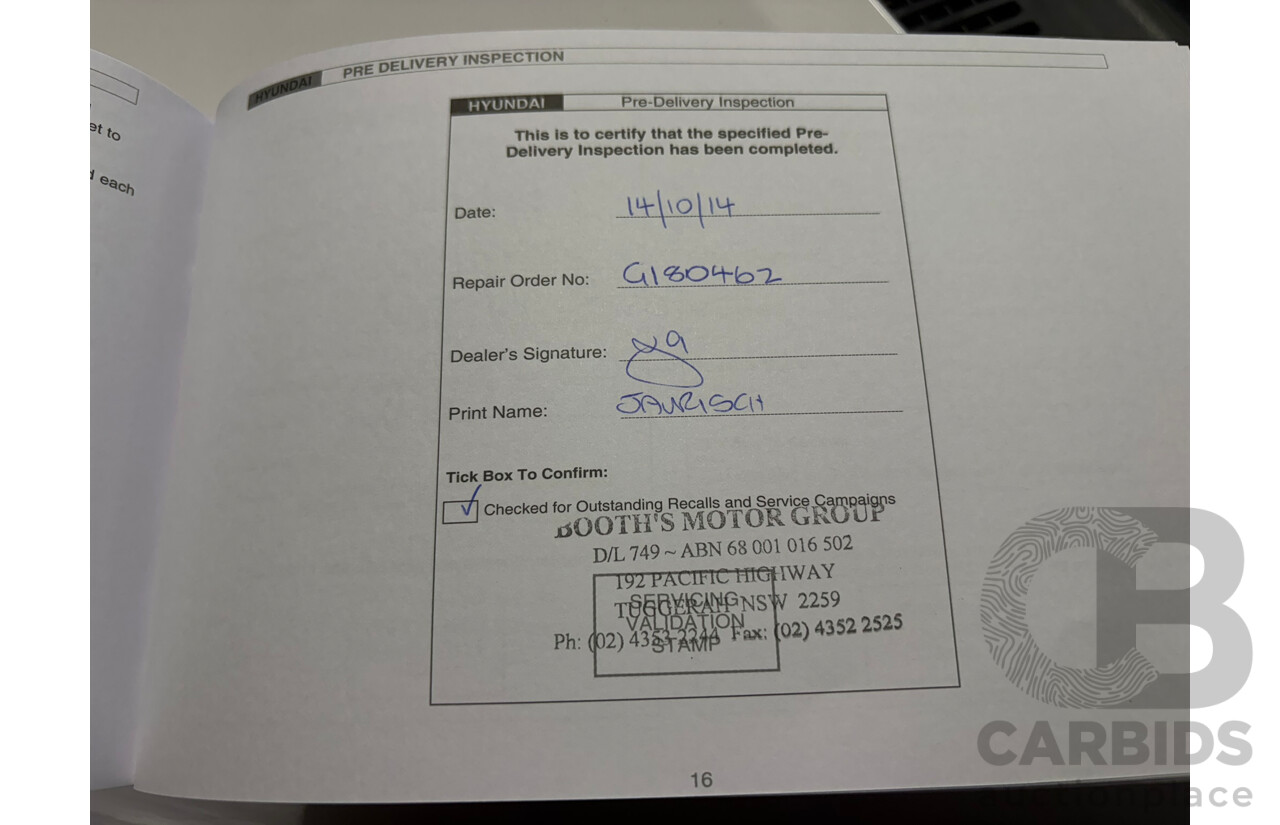 et to
each
HYUNDAI PRE DELIVERY INSPECTION
HYUNDAI Pre-Delivery Inspection
This is to certify that the specified Pre-
Delivery Inspection has been completed.
Date: 14/10/14
Repair Order No: G180462
Dealer's Signature:
Print Name: JAURISCH
Tick Box To Confirm:
Checked for Outstanding Recalls and Service Campaigns
BOOTH'S MOTOR GROUP
D/L 749 ~ ABN 68 001 016 502
192 PACIFIC HIGHWAY
SERVICING
TUGGERAH NSW 2259
VALIDATION
Ph: (02) 4353 2244 Fax: (02) 4352 2525
STAMP
16
CB
CARBIDS
auctionplace